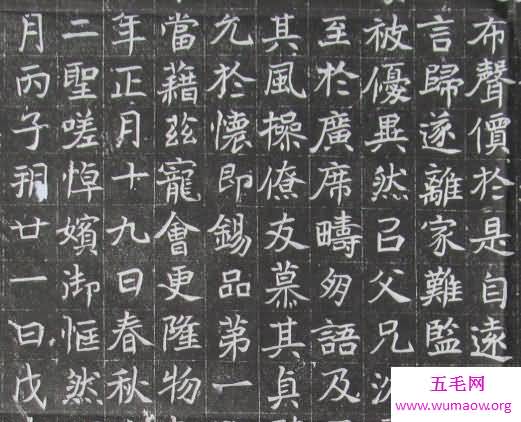 布聲價於是自遠
言歸遂離家難監
被優異然㠯父兄沉
至於廣席疇朋語及
其風操僚友慕其貞
允於懷即錫品第一
當藉茲寵會更隆物
年正月十九日春秋
二聖嗟悼嬪御恇然
月丙子朔廿一日戊
五毛网
www.wumaow.org